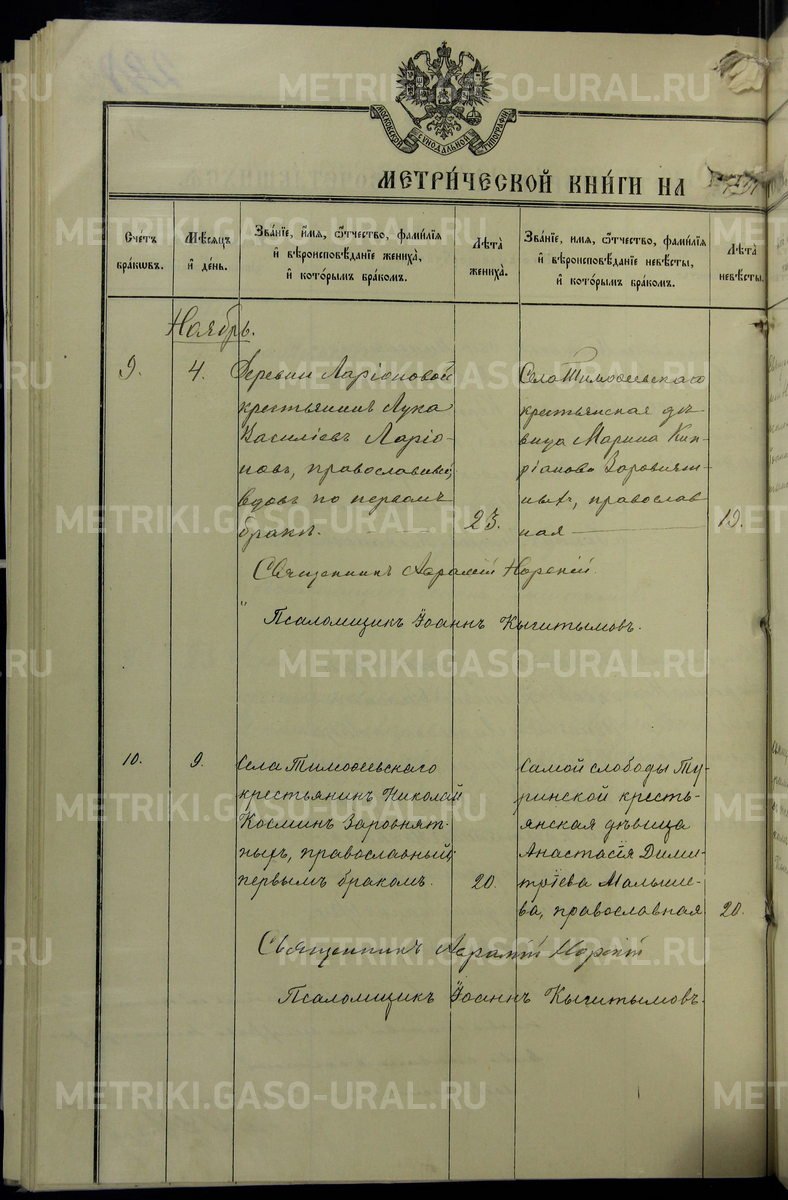 МОСКОВСКОЙ СѴНОДАЛЬНОЙ ТИПОГРАФІИ
МЕТРИ́ЧЕСКОЙ КНИ́ГИ НА
Сче́тъ бра́кѡвъ.
Мѣ́сяцъ и҆ де́нь.
Зва́нїе, и҆́мя, ѻ҆́тчество, фами́лїя и҆ вѣроисповѣ́данїе жениха̀, и҆ кото́рымъ бра́комъ.
Лѣ́та жениха̀.
Зва́нїе, имя, ѻ҆́тчество, фами́лїя и҆ вѣроисповѣ́данїе невѣ́сты, и҆ кото́рымъ бра́комъ.
Лѣ́та невѣ́сты.
Ноябрь.
9.
4.
Деревни Ларіоновой
крестьянинъ Лука
Василіевъ Ларіо-
новъ, православный,
вдовъ по первомъ
бракѣ.
23.
Села Тимоѳевскаго
крестьянская дѣ-
вица Марина Кип-
ріанова Заровнят-
ныхъ, православ
ная
19.
Священникъ Авраамій Норскій.
" Псаломщикъ Іоаннъ Кыштымовъ.
10.
9.
Села Тимоѳевскаго
крестьянинъ Николай
Косминъ Заровнят-
ныхъ, православный,
первымъ бракомъ.
20.
Самой слободы Ту-
ринской кресть-
янская дѣвица
Анастасія Дими-
тріева Малыше-
ва, православная
20.
Священникъ Авраамій Норскій
Псаломщикъ Іоаннъ Кыштымовъ.
METRIKI.GASO-URAL.RU